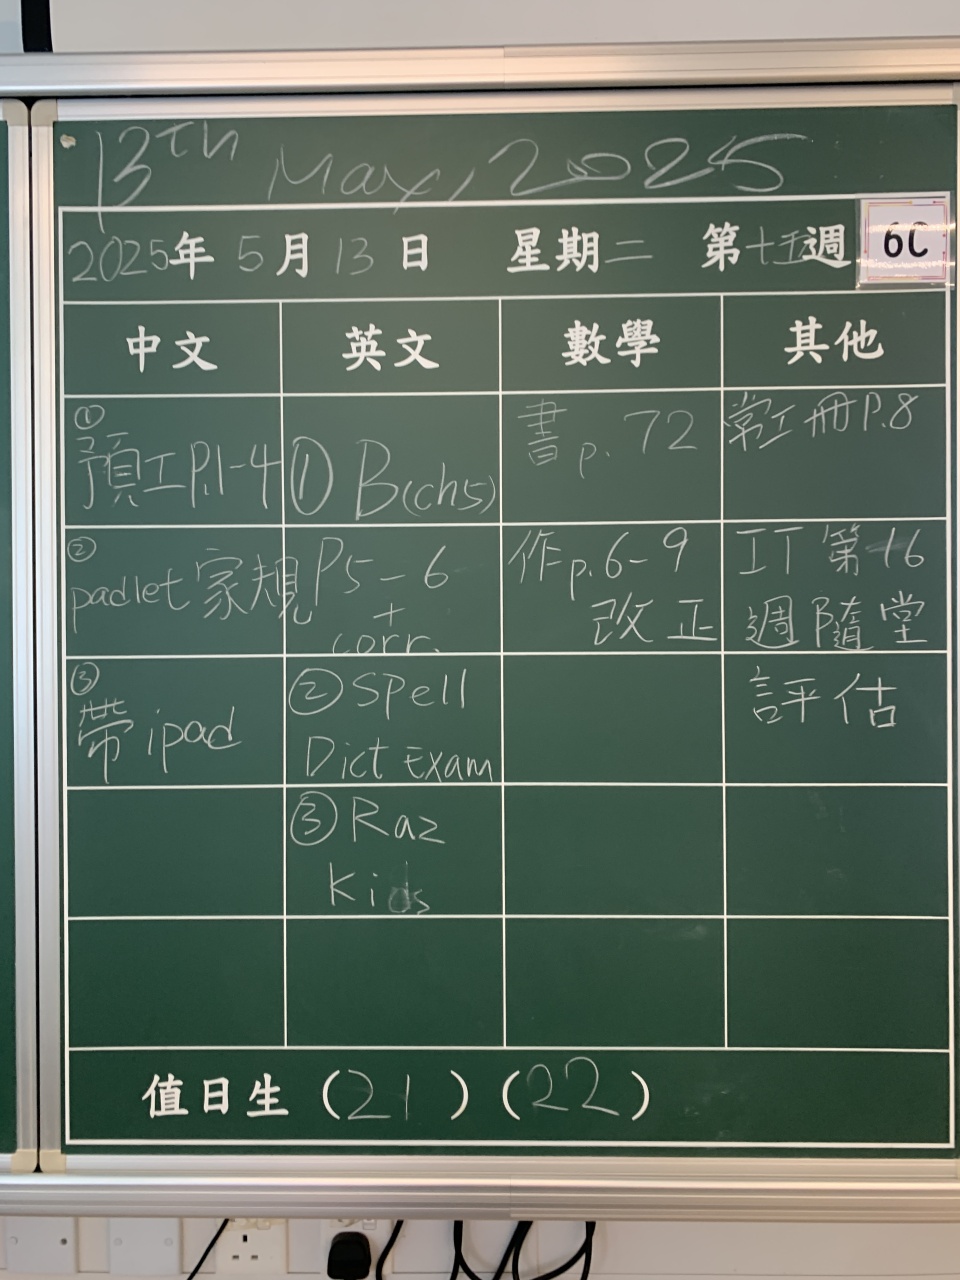 13th May, 2025
2025年 5月 13日 星期二 第十五週 6C
中文 英文 數學 其他
①
預工P.1-4
②
padlet 家規
③
帶 ipad
① B(ch5)
P5-6
+
corr.
② Spell
Dict Exam
③ Raz
Kids
書 p. 72
作 p.6-9
改正
常工冊 P.8
IT 第16
週隨堂
評估
值日生 (21) (22)